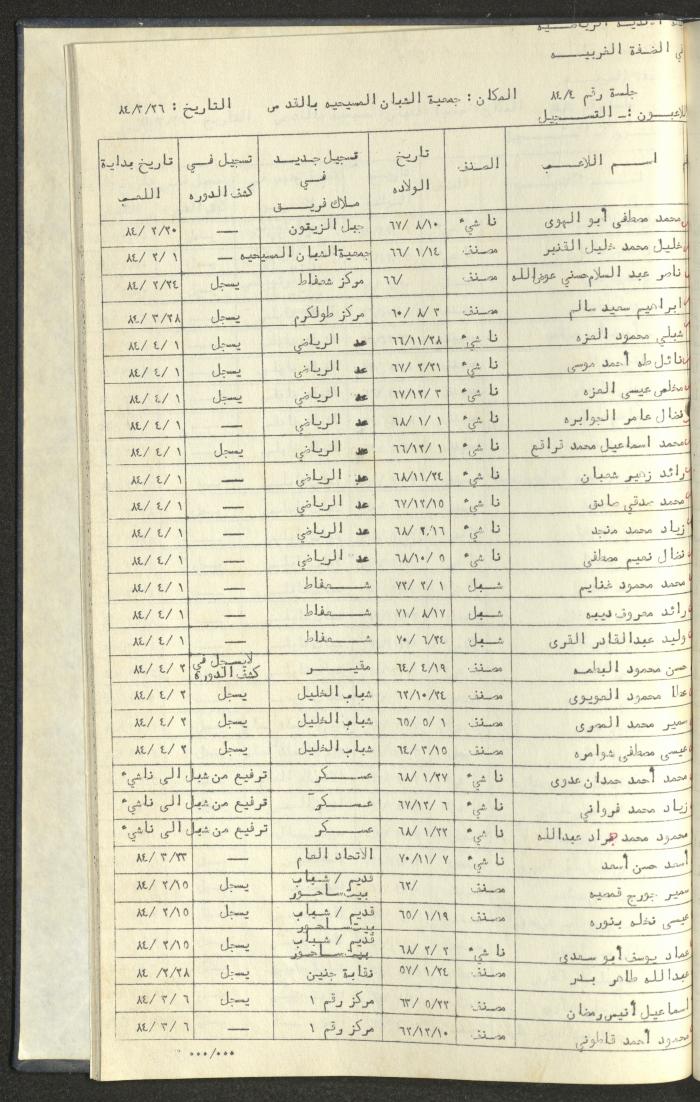 في الضفة الغربيـــه
جلسة رقم ٨٤/٤ المكان : جمعية الشبان المسيحيه بالقدس التاريخ : ٨٤/٣/٢٦
اللاعبـون :ـ التســجيل
اســم اللاعــب الصنف تاريخ الولاده تسجيل جديــد فــي ملاك فريــق تسجيل فــي كشف الدوره تاريخ بداية اللعب
محمد مصطفى أبو الهوى ناشيء ٦٧/ ٨/١٠ جبل الزيتون — ٨٤/ ٢/٢٠
خليل محمد خليل القنبر مصنف ٦٦/ ١/١٤ جمعية الشبان المسيحيه — ٨٤/ ٢/ ١
ناصر عبد السلام حسني عوض الله مصنف ٦٦/ مركز شعفاط يسجل ٨٤/ ٢/٢٤
ابراهيم سعيد سالم مصنف ٦٠/ ٨/ ٢ مركز طولكرم يسجل ٨٤/ ٣/٢٨
شبلي محمود العزه ناشيء ٦٦/١١/٢٨ الرياضي يسجل ٨٤/ ٤/ ١
نائل طه أحمد موسى ناشيء ٦٧/ ٢/٢١ الرياضي يسجل ٨٤/ ٤/ ١
مخلص عيسى العزه ناشيء ٦٧/١٢/ ٣ الرياضي يسجل ٨٤/ ٤/ ١
نضال عامر الجوابره ناشيء ٦٨/ ١/ ١ الرياضي — ٨٤/ ٤/ ١
محمد اسماعيل محمد قراقع ناشيء ٦٦/١٢/ ١ الرياضي يسجل ٨٤/ ٤/ ١
رائد زهير شعبان ناشيء ٦٨/١١/٢٤ الرياضي — ٨٤/ ٤/ ١
محمد صدقي صادق ناشيء ٦٧/١٢/١٥ الرياضي — ٨٤/ ٤/ ١
زياد محمد منجد ناشيء ٦٨/ ٢.١٦ الرياضي — ٨٤/ ٤/ ١
نضال نعيم مصطفى ناشيء ٦٨/١٠/ ٥ الرياضي — ٨٤/ ٤/ ١
محمد محمود غنايم شــبل ٧٢/ ٢/ ١ شـــعفاط — ٨٤/ ٤/ ١
رائد معروف ديبه شــبل ٧١/ ٨/١٧ شـــعفاط — ٨٤/ ٤/ ١
وليد عبدالقادر القرى شــبل ٧٠/ ٦/٢٤ شـــعفاط — ٨٤/ ٤/ ١
حسن محمود مصنف ٦٤/ ٤/١٩ لايسجل في كشف الدوره ٨٤/ ٤/ ٢
عطا محمود العويوى مصنف ٦٢/١٠/٢٤ شباب الخليل يسجل ٨٤/ ٤/ ٢
سمير محمد المصرى مصنف ٦٥/ ٥/ ١ شباب الخليل يسجل ٨٤/ ٤/ ٢
عيسى مصطفى شوامره مصنف ٦٤/ ٢/١٥ شباب الخليل يسجل ٨٤/ ٤/ ٢
محمد أحمد حمدان عدوى ناشيء ٦٨/ ١/٢٧ عســـكر ترفيع من شبل الى ناشيء
زياد محمد فرواني ناشيء ٦٧/١٢/ ٦ عســـكر ترفيع من شبل الى ناشيء
محمود محمد جراد عبدالله ناشيء ٦٨/ ١/٢٢ عســـكر ترفيع من شبل الى ناشيء
أسعد حسن أسعد ناشيء ٧٠/١١/ ٧ الاتحاد العام — ٨٤/ ٣/٢٣
سمير جورج قمصيه مصنف ٦٢/ قديم / شباب بيت ساحور يسجل ٨٤/ ٢/١٥
عيسى نخله بنوره مصنف ٦٥/ ١/١٩ قديم / شباب بيت ساحور يسجل ٨٤/ ٢/١٥
عماد يوسف أبو سعدى ناشيء ٦٨/ ٢/ ٢ قديم / شباب بيت ساحور يسجل ٨٤/ ٢/١٥
عبدالله طاهر بدر مصنف ٥٧/ ١/٢٤ نقابة جنين يسجل ٨٤/ ٢/٢٨
اسماعيل أنيس رمضان مصنف ٦٣/ ٥/٢٢ مركز رقم ١ يسجل ٨٤/ ٣/ ٦
محمود أحمد قاطوني مصنف ٦٢/١٢/١٠ مركز رقم ١ — ٨٤/ ٣/ ٦
٠٠٠/٠٠٠